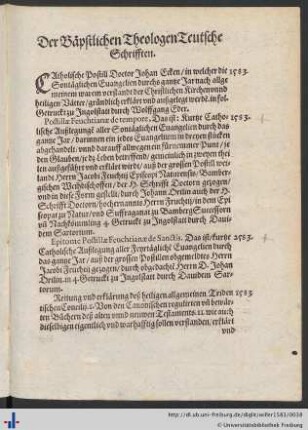 Der Bäpstlichen Theologen Teutsche
Schrifften.
CAtholische Postill Doctor Johan Ecken / in welcher die 1583.
Sontäglichen Euangelien durchs gantz Jar nach allge
meinem warem verstandt der Christlichen Kirchen vnnd
heiligen Vätter / gründlich erklärt vnd außgelegt werdē. in fol.
Getruckt zu Ingolstatt durch Wolffgang Eder.
Postillæ Feuchtianæ de tempore. Das ist: Kurtze Catho- 1583.
lische Außlegung aller Sontäglichen Euangelien durch das
gantz Jar / darinnen ein jedes Euangelium in dreyen stücken
abgehandelt. vnnd darauff allwegen ein fürnemmer Punct / je
den Glauben / je dz Leben betreffend / gemeinlich in zweyen thei
len außgeführet vnd erklärt wirdt / auß der grossen Postill wei-
lande Herrn Jacobi Feuchtij Episcopi Naturensis / Bamber-
gischen Weihbischoffen / der H. Schrifft Doctorn gezogen /
vnd in diese Form gestellt / durch Johann Ortlin auch der H.
Schrifft Doctorn / hochernannts Herrn Feuchtij / in dem Epi
scopat zu Natur / vnd Suffraganat zu Bamberg Successorn
vñ Nachkömmling 4. Getruckt zu Ingolstatt durch Daui-
dem Sartorium.
Epitome Postillæ Feuchtianæ de Sanctis. Das ist / kurtze 1583.
Catholische Außlegung aller Feyrtäglichē Euangelien durch
das gantz Jar / auß der grossen Postillen obgemeldtes Herrn
Jacobi Feuchtij gezogen / durch obgedachtē Herrn D. Johan
Ortlin. in 4. Getruckt zu Ingolstatt durch Dauidem Sar-
torium.
Rettung vnd erklärung deß heiligen allgemeinen Tridē 1583.
tischen Concilij. 1. Von den Canonischen regulierten vñ bewär-
ten Büchern deß alten vnnd newen Testaments. 11. wie auch
dieselbigen eigentlich vnd warhafftig sollen verstanden / erklärt
vnd
http://dl.ub.uni-freiburg.de/diglit/weller1583/0038
© Universitätsbibliothek Freiburg